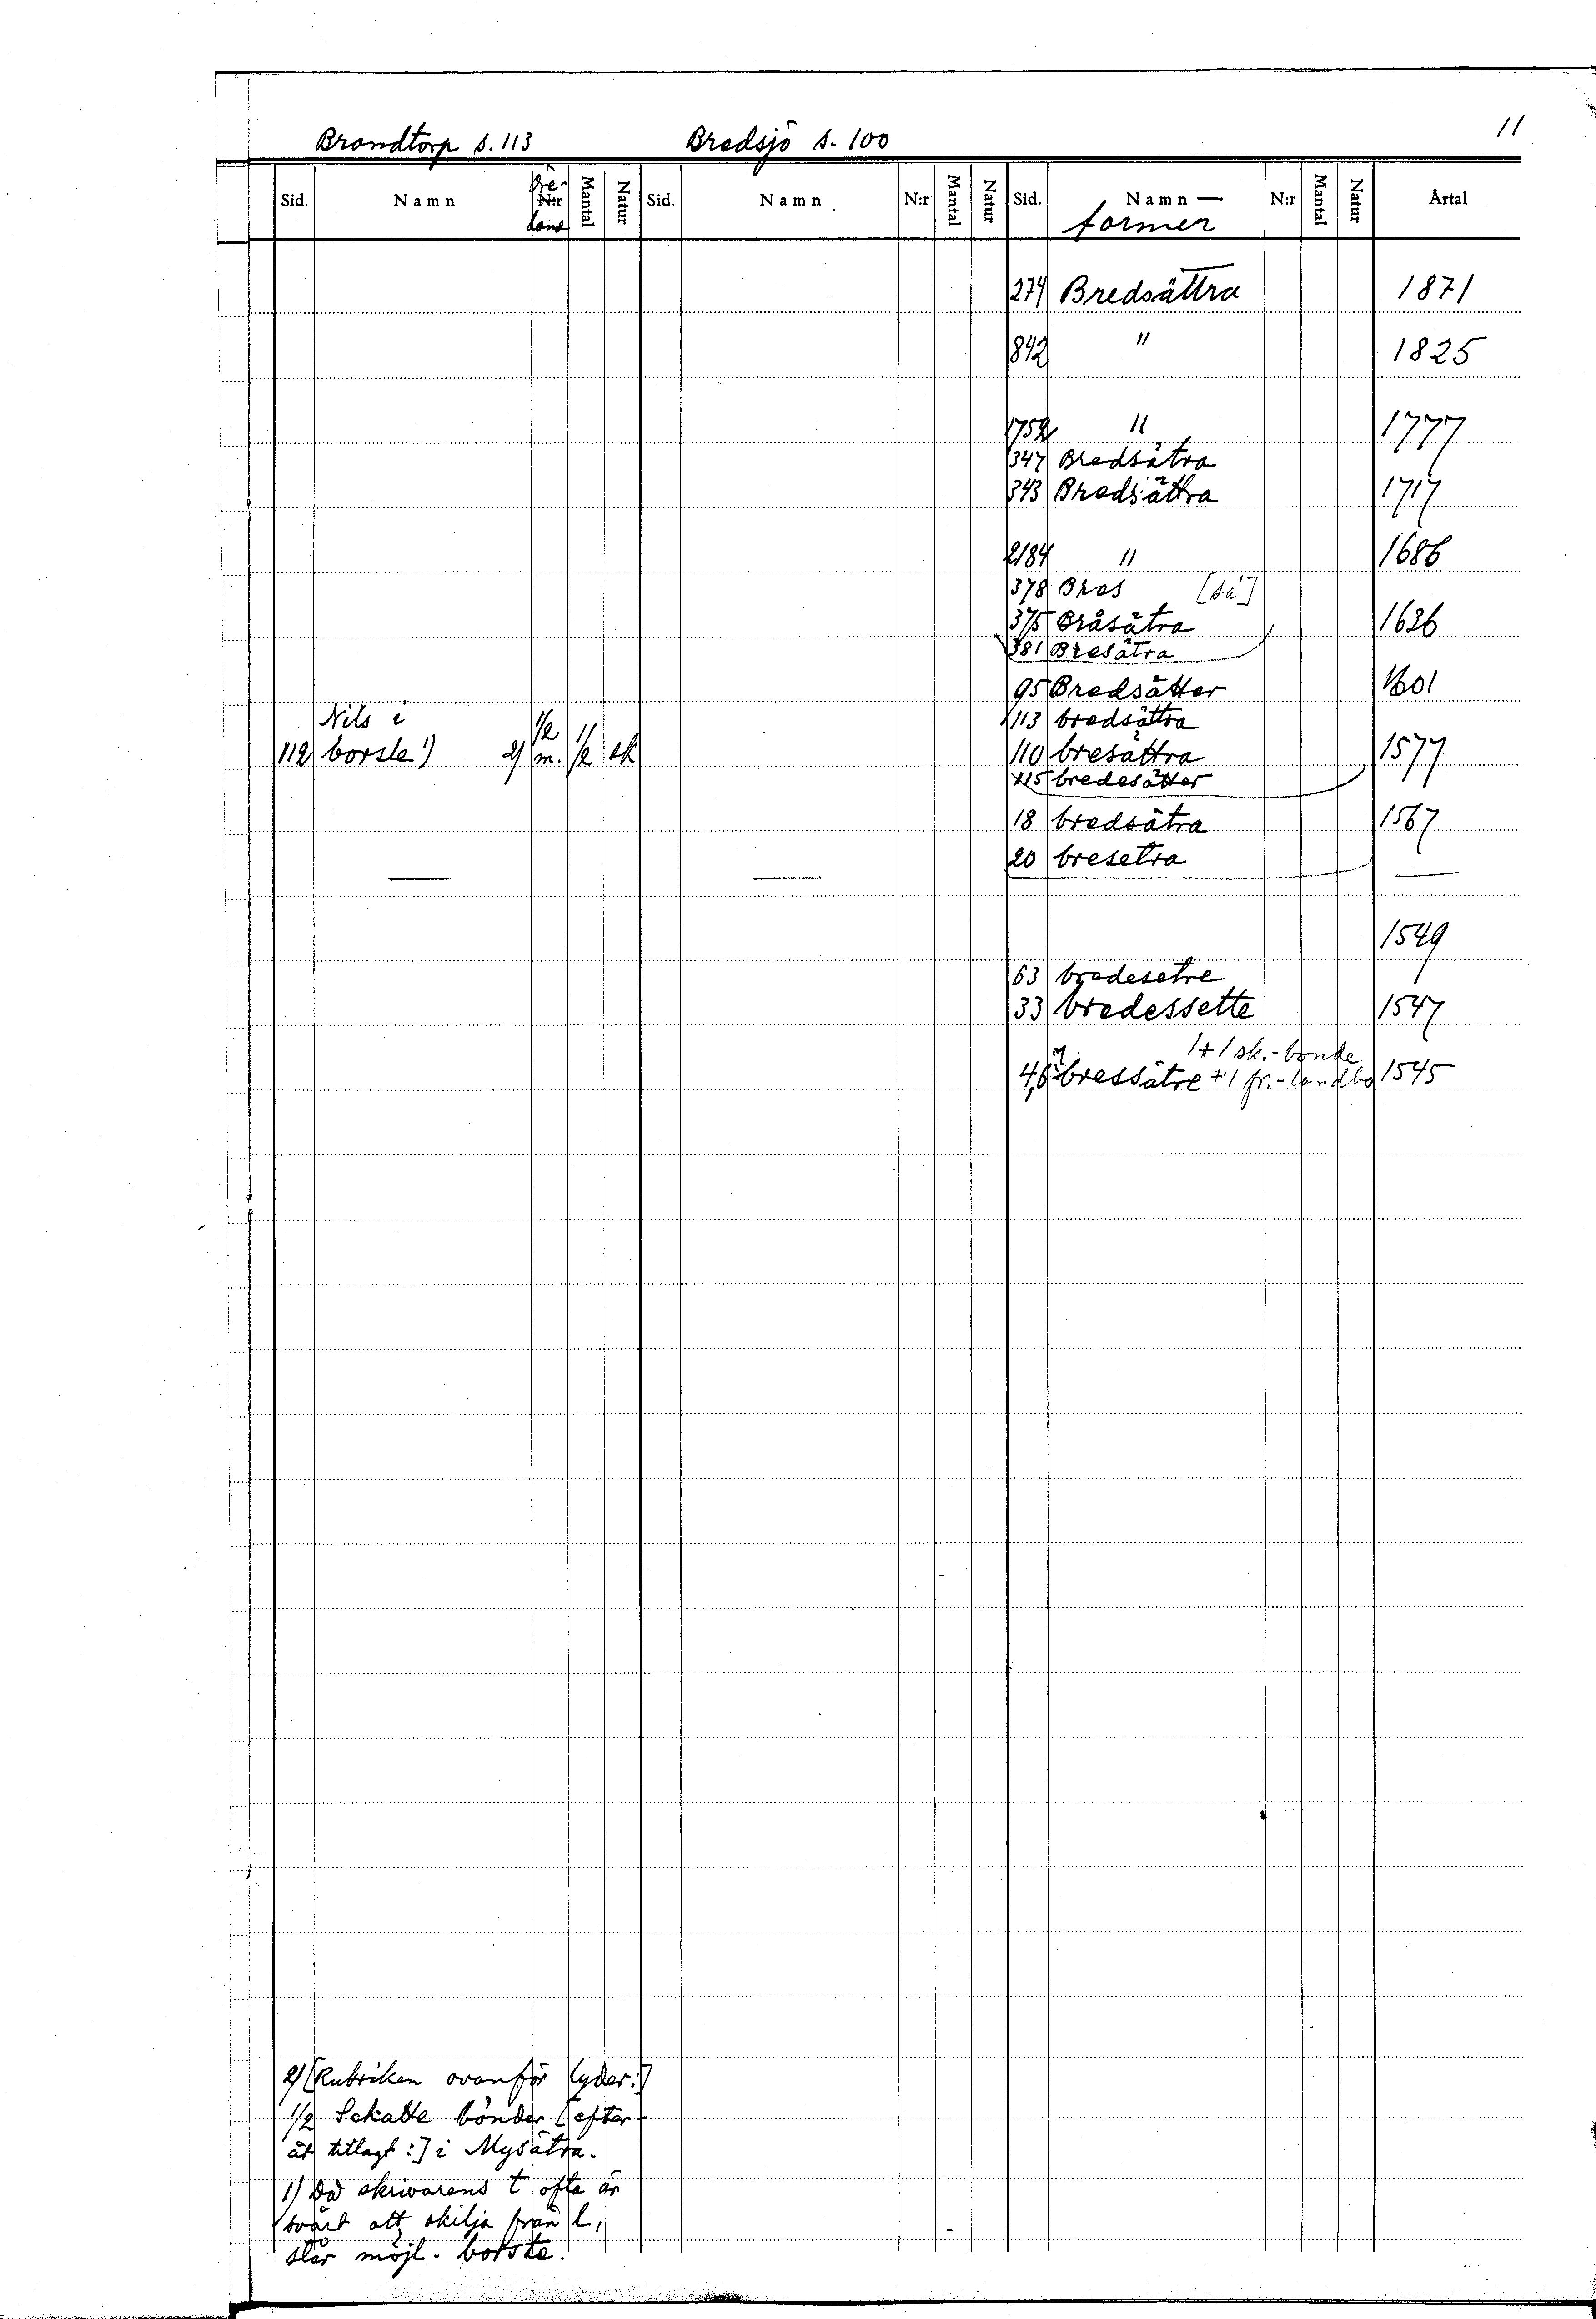 11
Brandtorp s. 113 Bredsjö s. 100
Sid. Namn N:r Mantal Natur Sid. Namn N:r Mantal Natur Sid. Namn — N:r Mantal Natur Årtal
land former
274 Bredsättra 1871
842 " 1825
1752 " 1777
347 Bredsätra
343 Bredsättra 1717
2184 " 1686
378 Bres [så]
375 Bråsätra 1636
381 Bresätra
95 Bredsätter 1601
Nils i 1/2 113 bredsättra
112 borsle 1) 2) m. 1/2 sk 110 bresättra 1577
115 bredesätter
18 bredsätra 1567
20 bresetra
— — —
1549
63 bredesetre
33 bredessette 1547
1+1 sk.-bonde
46 bressätre +1 fr.-landbo 1545
2) [Rubriken ovanför lyder:]
1/2 Skatte bönder [efter-
åt tillagt:] i Mysätra.
1) Då skrivarens t ofta är
svårt att skilja från l,
står möjl. borste.